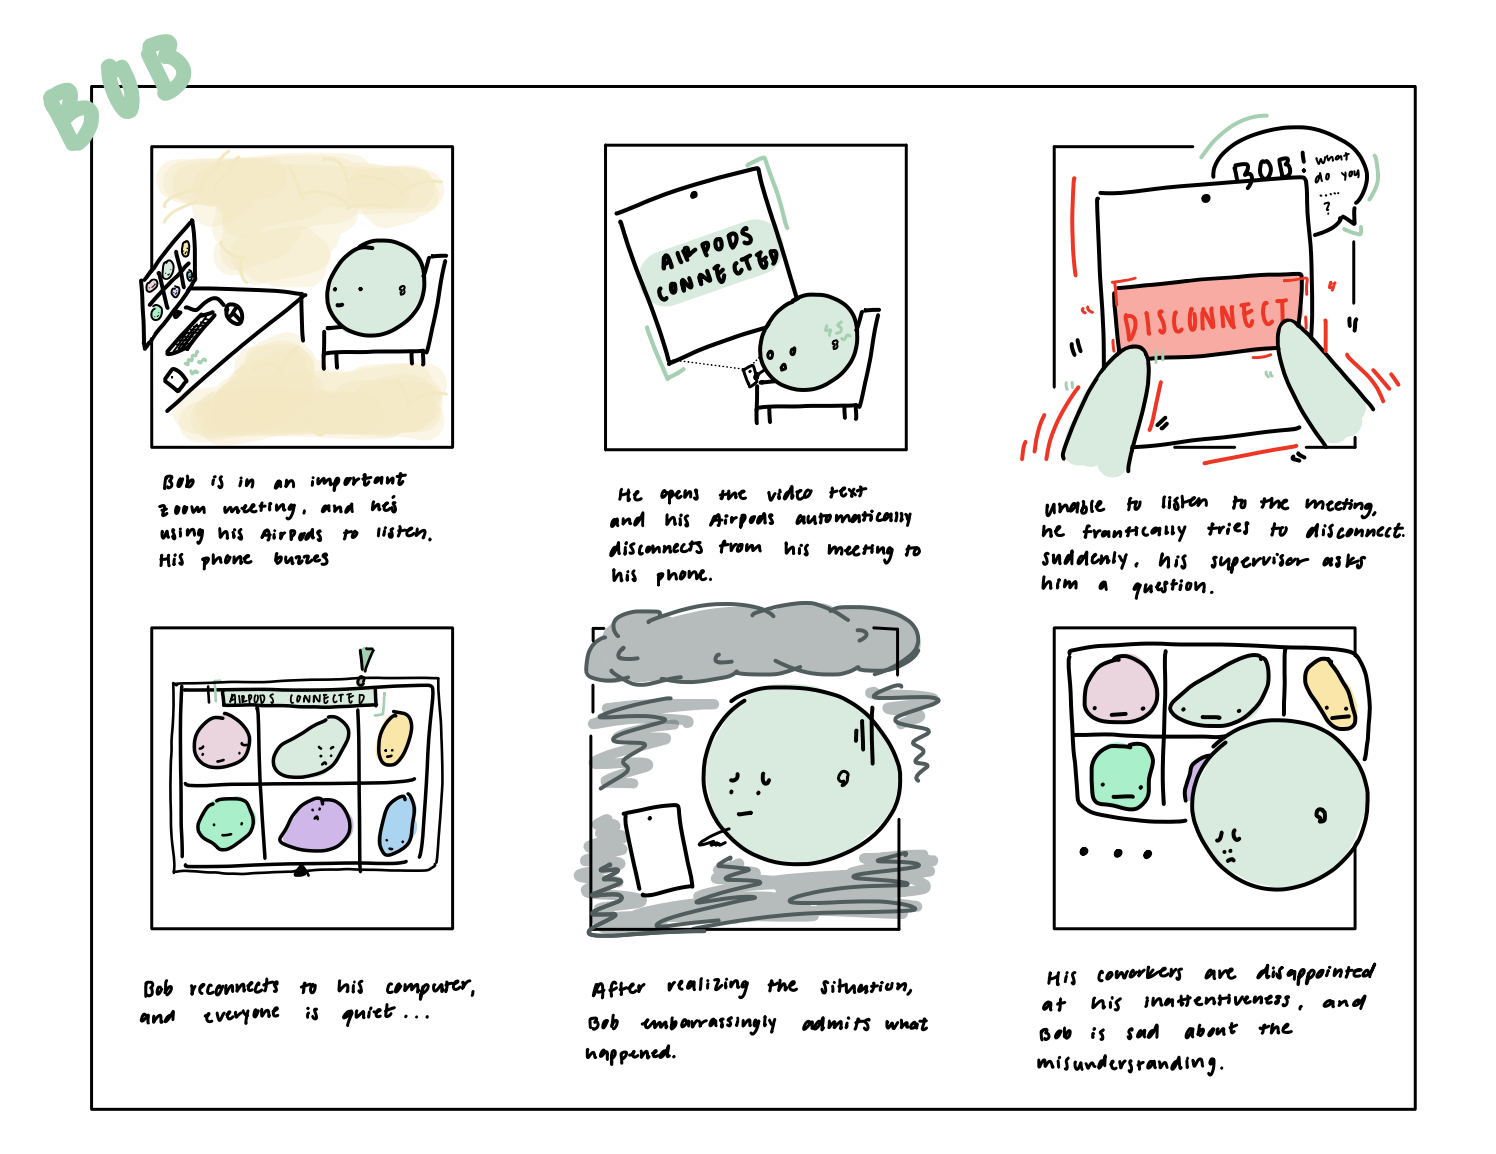 BOB
AIRPODS
CONNECTED
BOB! what
do you
.....
?
DISCONNECT
Bob is in an important
zoom meeting, and he's
using his AirPods to listen.
His phone buzzes
He opens the video text
and his Airpods automatically
disconnects from his meeting to
his phone.
unable to listen to the meeting,
he frantically tries to disconnect.
suddenly, his supervisor asks
him a question.
AIRPODS CONNECTED
Bob reconnects to his computer,
and everyone is quiet...
After realizing the situation,
Bob embarrassingly admits what
happened.
...
His coworkers are disappointed
at his inattentiveness, and
Bob is sad about the
misunderstanding.